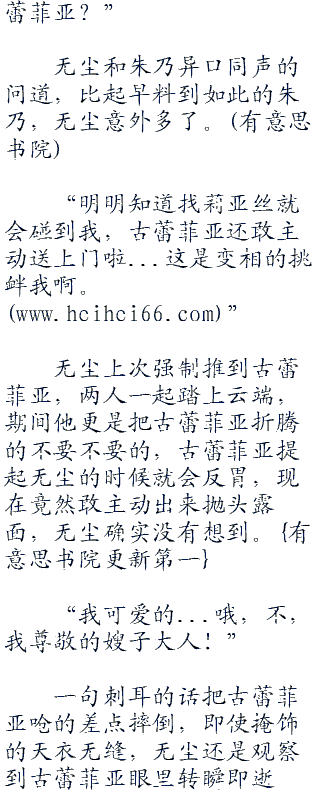 蕾菲亚？”
无尘和朱乃异口同声的
问道，比起早料到如此的朱
乃，无尘意外多了。(有意思
书院)
“明明知道找莉亚丝就
会碰到我，古蕾菲亚还敢主
动送上门啦...这是变相的挑
衅我啊。
(www.hcihci66.com)”
无尘上次强制推到古蕾
菲亚，两人一起踏上云端，
期间他更是把古蕾菲亚折腾
的不要不要的，古蕾菲亚提
起无尘的时候就会反胃，现
在竟然敢主动出来抛头露
面，无尘确实没有想到。{有
意思书院更新第一}
“我可爱的...哦，不，
我尊敬的嫂子大人！”
一句刺耳的话把古蕾菲
亚呛的差点摔倒，即使掩饰
的天衣无缝，无尘还是观察
到古蕾菲亚眼里转瞬即逝